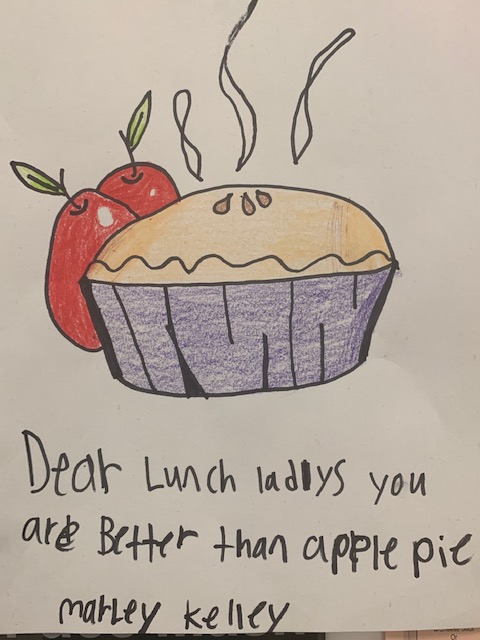 Dear Lunch ladlys you
are Better than apple pie
marley kelley